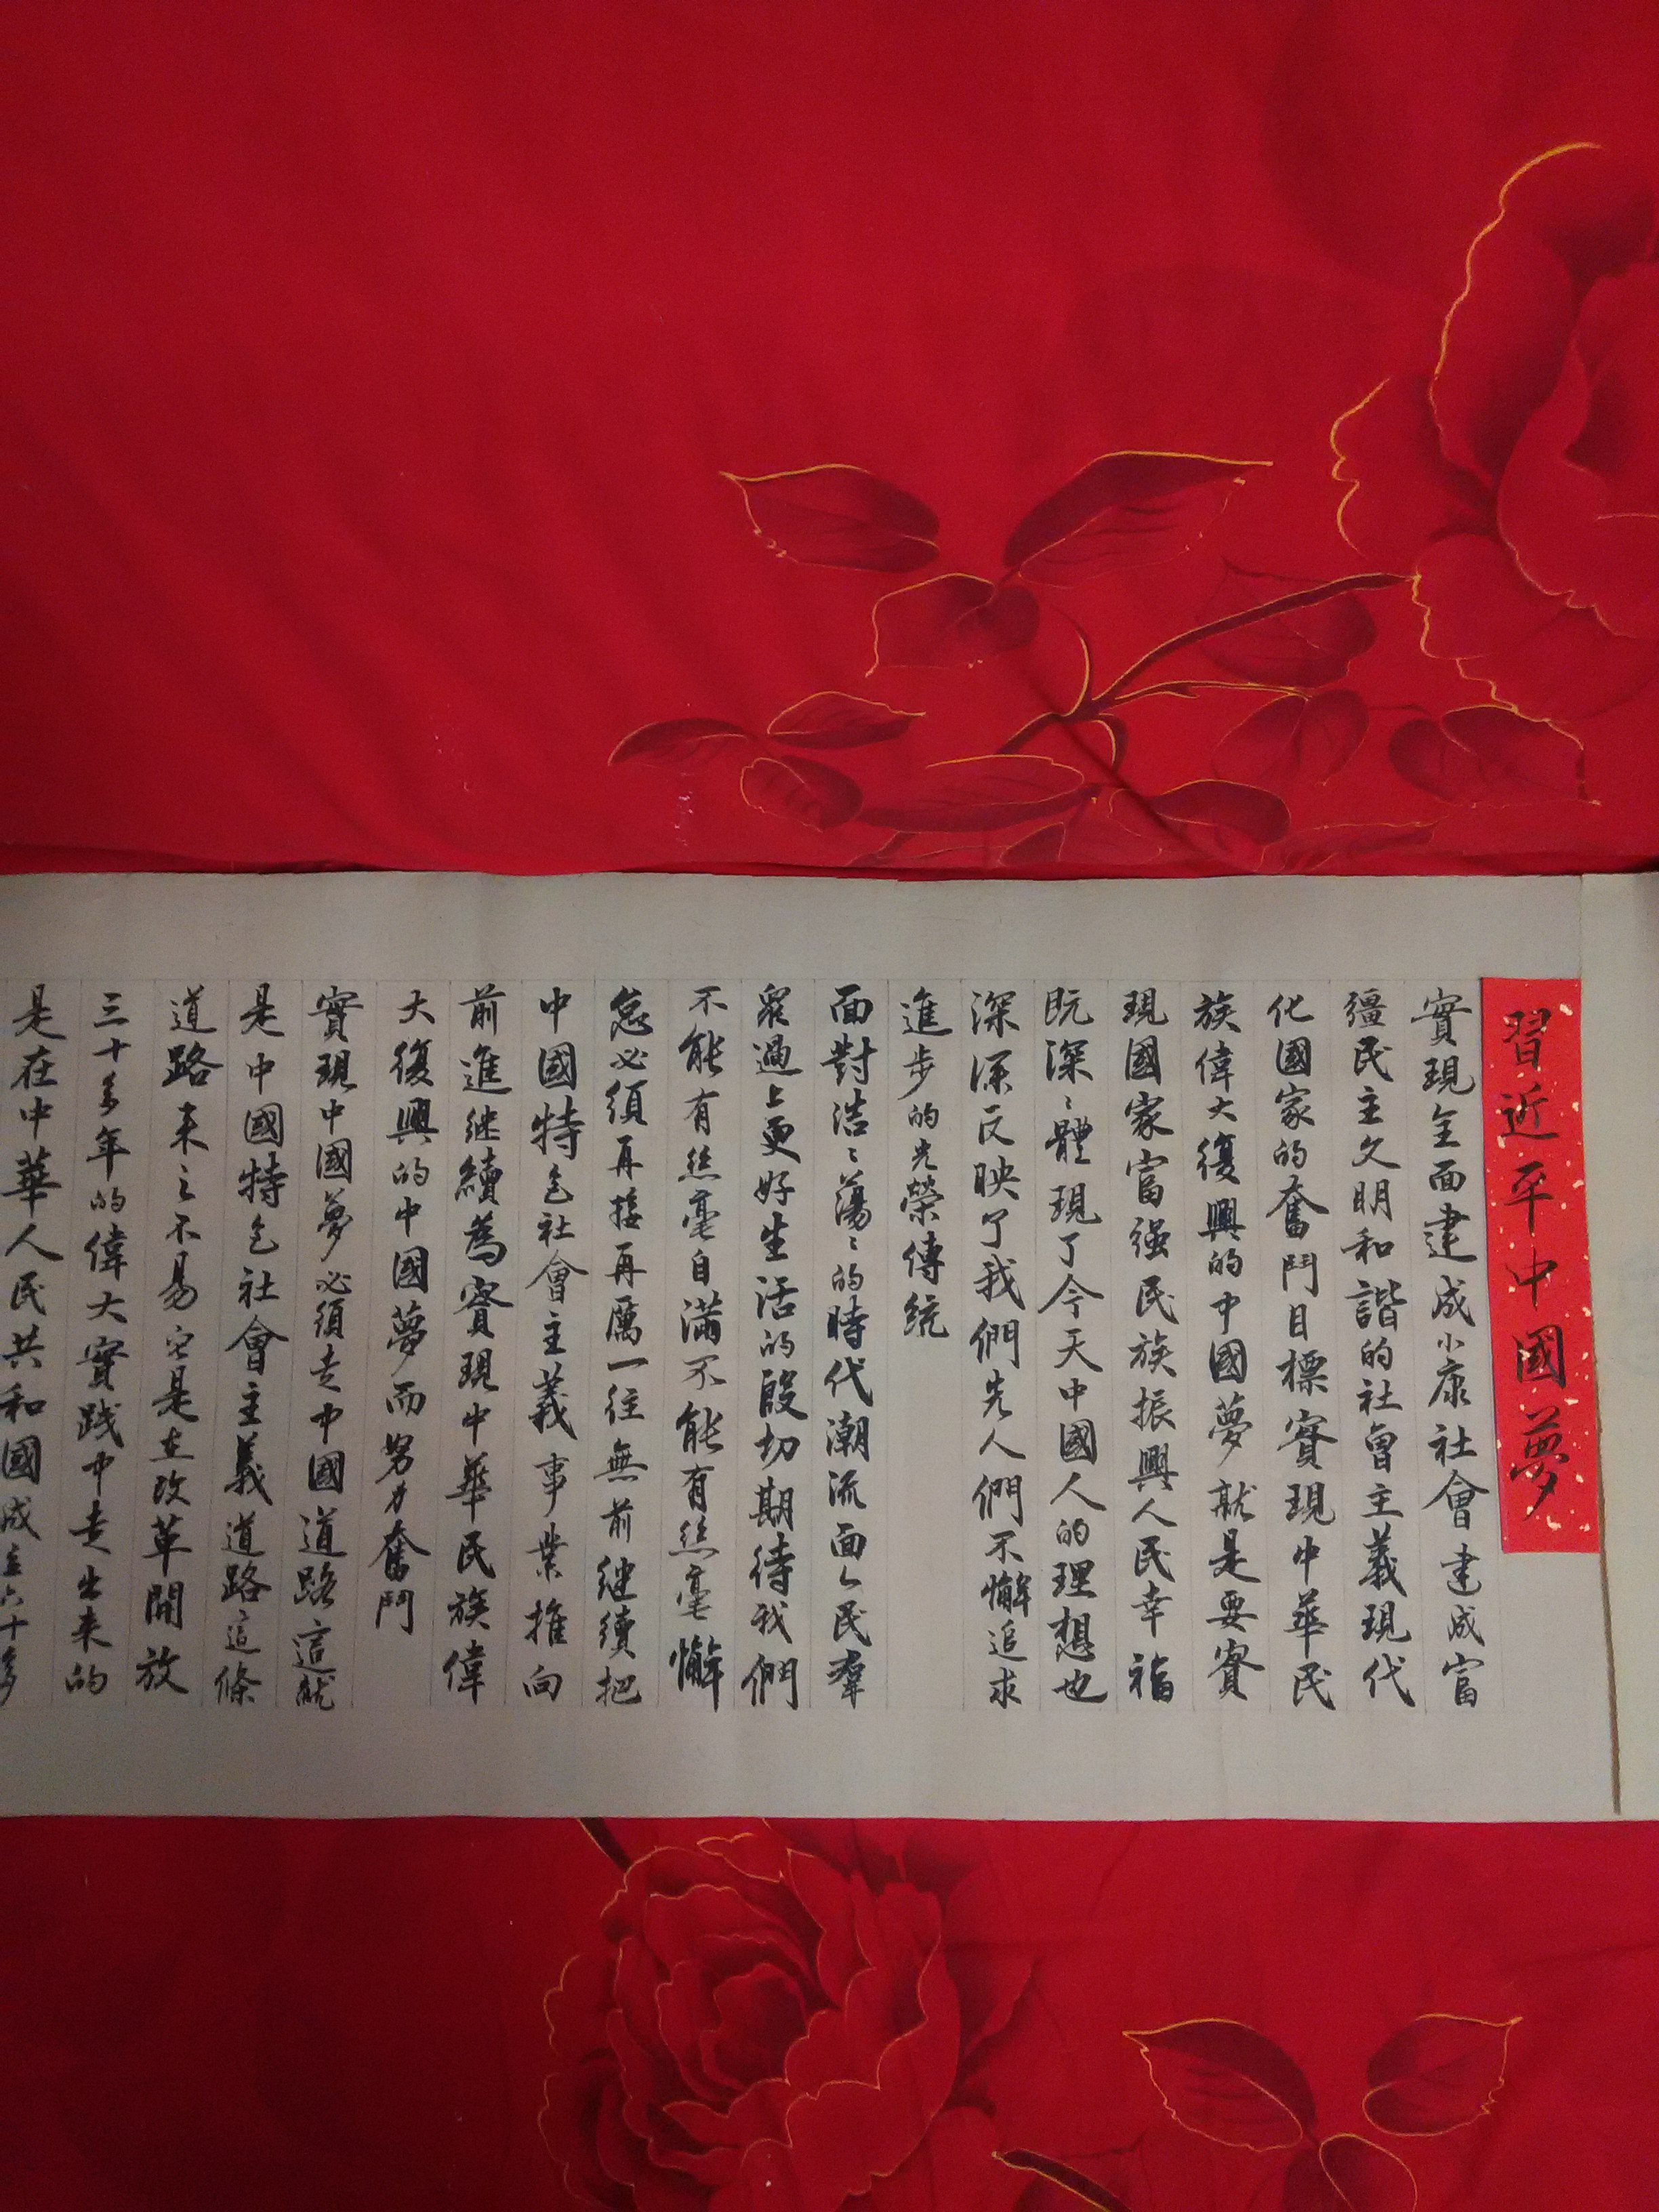 習近平中國夢
實現全面建成小康社會建成富
彊民主文明和諧的社會主義現代
化國家的奮鬥目標實現中華民
族偉大復興的中國夢就是要實
現國家富强民族振興人民幸福
既深〻體現了今天中國人的理想也
深深反映了我們先人們不懈追求
進步的光榮傳統
面對浩〻蕩〻的時代潮流面人民羣
衆過上更好生活的殷切期待我們
不能有絲毫自滿不能有絲毫懈
怠必須再接再厲一往無前继續把
中國特色社會主義事業推向
前進继續為實現中華民族偉
大復興的中國夢而努力奮鬥
實現中國夢必須走中國道路這就
是中國特色社會主義道路這條
道路来之不易它是在改革開放
三十多年的偉大實踐中走出来的
是在中華人民共和國成立六十多